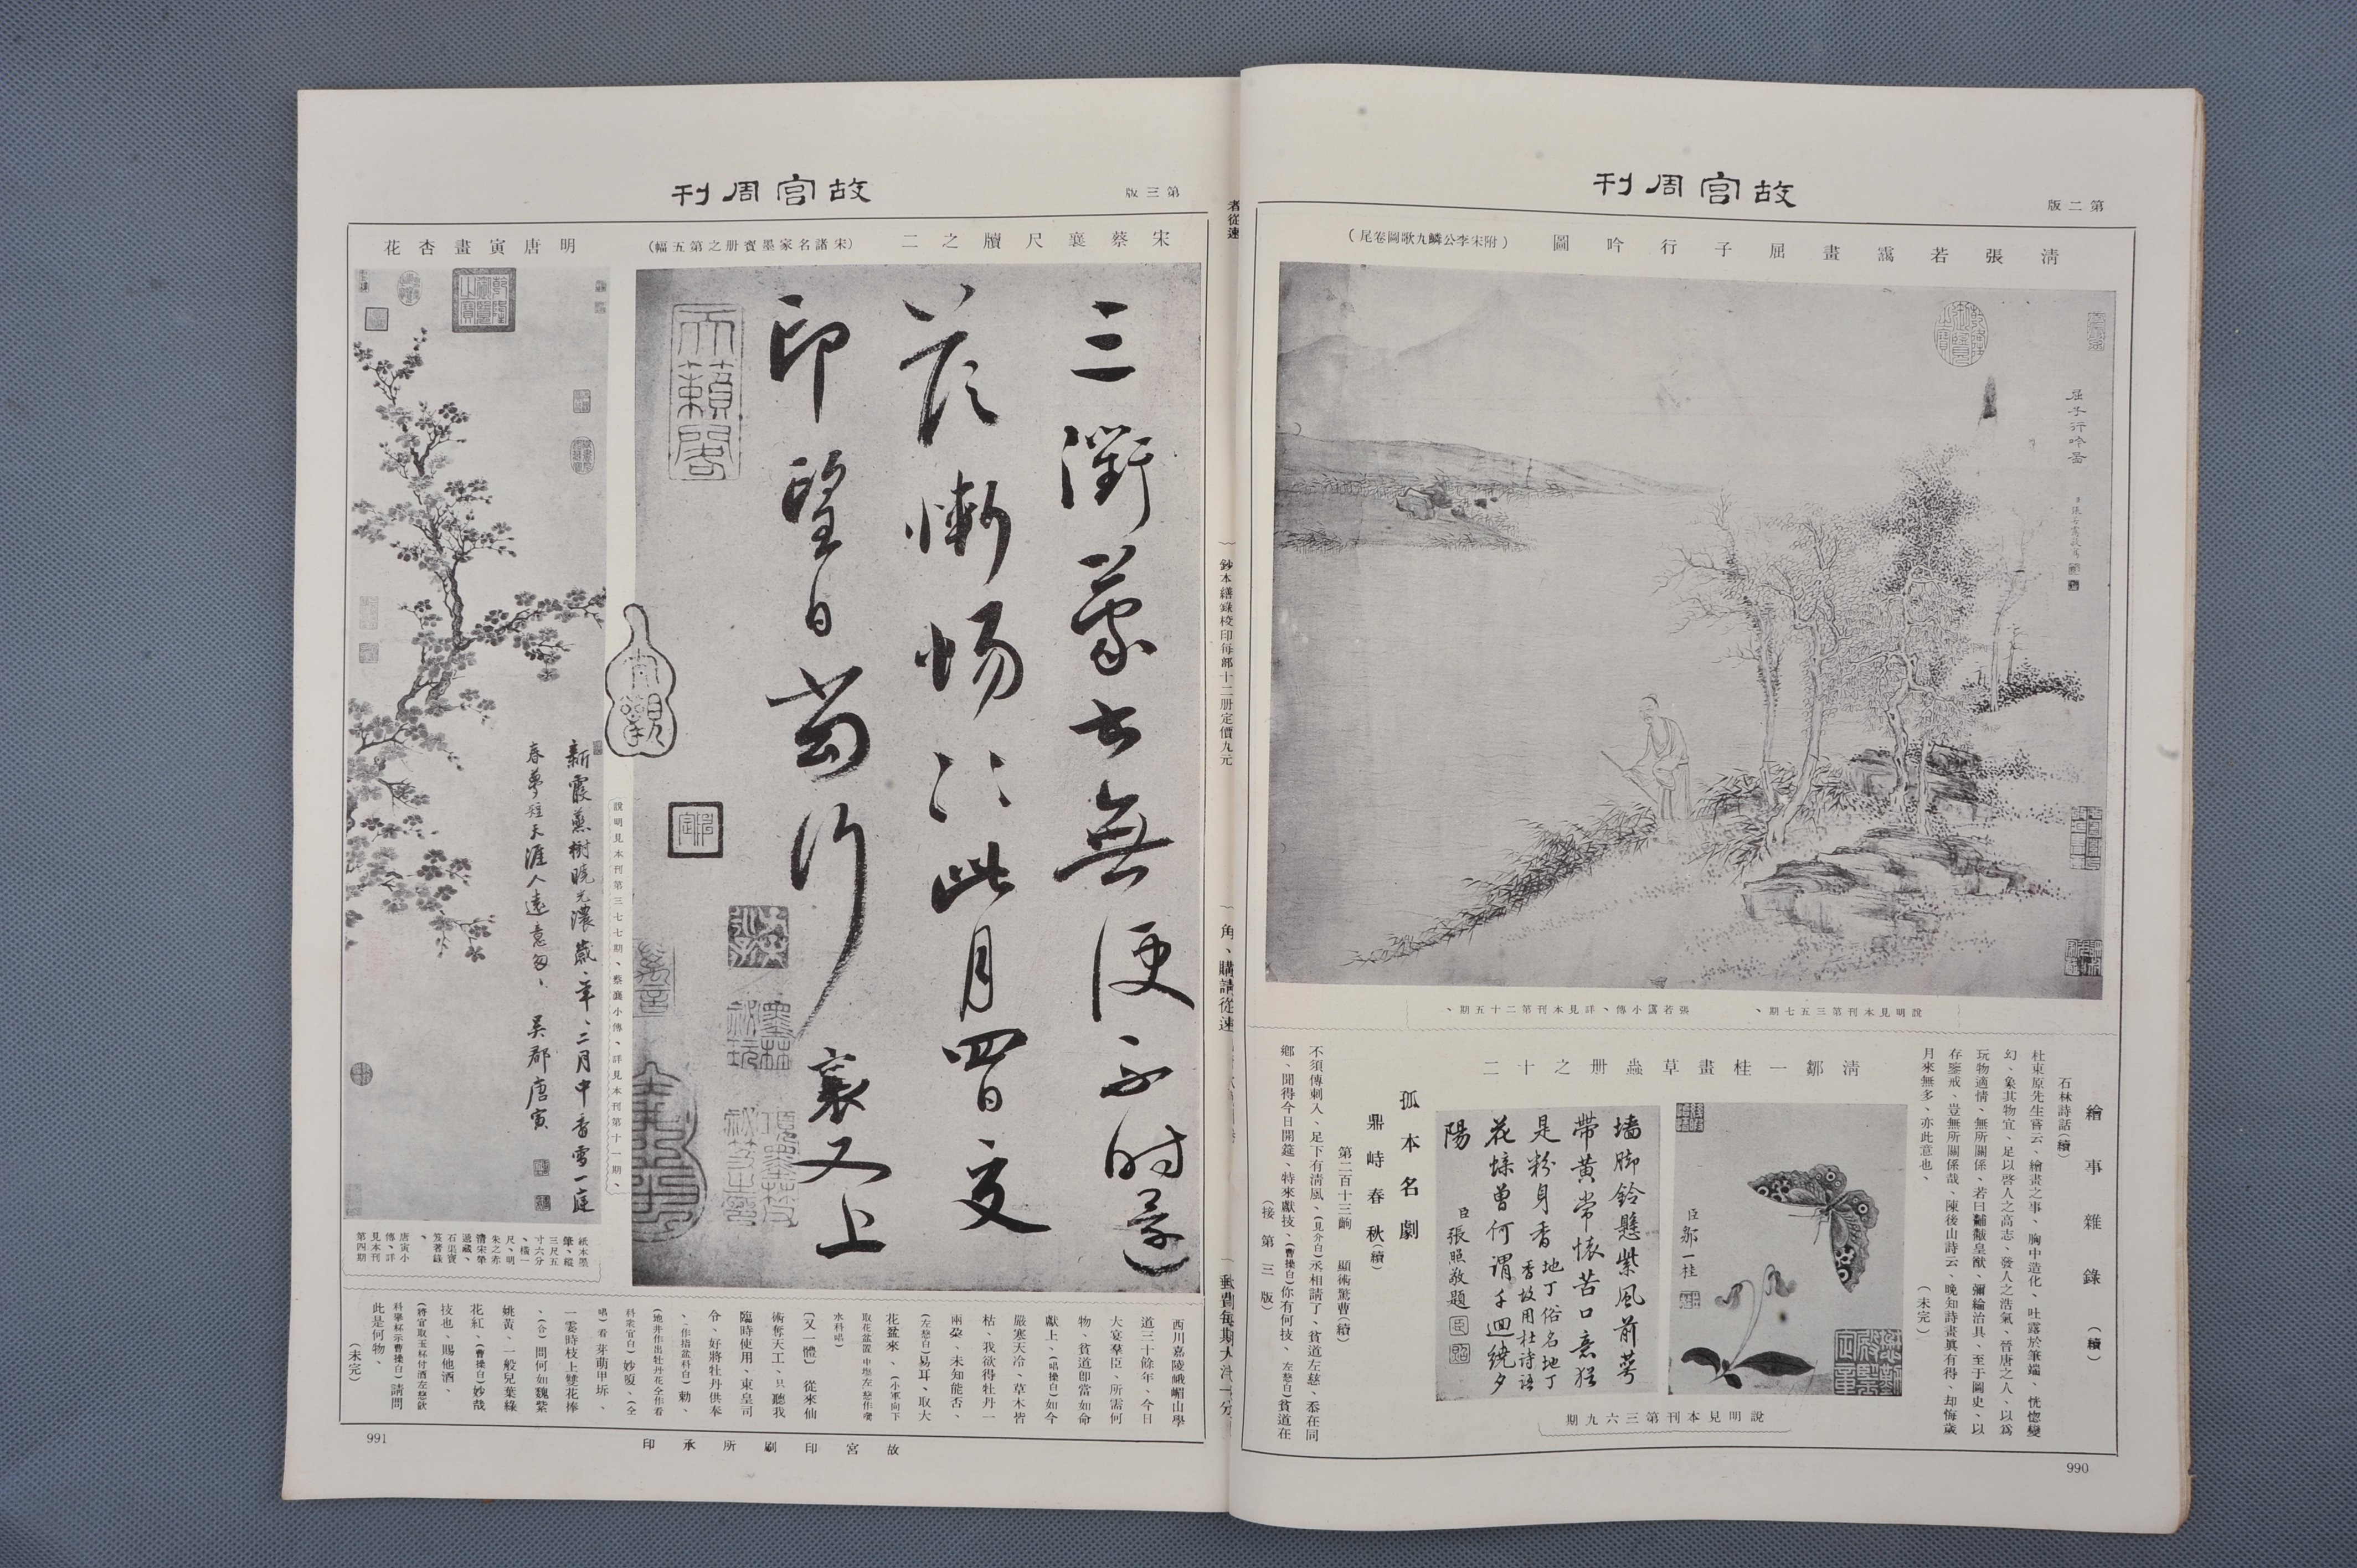 第二版
故宮周刊
清張若靄畫屈子行吟圖
（附宋李公麟九歌圖卷尾）
屈子行吟圖
說明見本刊第三五七期、
張若靄小傳、詳見本刊第二十五期、
繪事雜錄（續）
石林詩話（續）
杜東原先生嘗云、繪畫之事、胸中造化、吐露於筆端、恍惚變
幻、象其物宜、足以啓人之高志、發人之浩氣、晉唐之人、以爲
玩物適情、無所關係、若曰黼黻皇猷、彌綸治具、至于圖史、以
存鑒戒、豈無所關係哉、陳後山詩云、晚知詩畫眞有得、却悔歲
月來無多、亦此意也、
（未完）
清鄒一桂畫草蟲册之十二
臣鄒一桂
墻脚鈴懸紫風前萼
帶黃常懷苦口意猶
是粉身香 地丁俗名地丁
香故用杜詩語
花蜨曾何謂千迴繞夕
陽
臣張照敬題
說明見本刊第三六九期
孤本名劇
鼎峙春秋（續）
第二百十三齣 顯術驚曹（續）
不須傳刺入、足下有清風、（見介白）丞相請了、貧道左慈、忝在同
鄉、聞得今日開筵、特來獻技、（曹操白）你有何技、（左慈白）貧道在
（接第三版）
990
者從速
鈔本繕錄校印每部十二册定價九元
角、購請從速
郵費每期大洋一分
第三版
故宮周刊
宋蔡襄尺牘之二
（宋諸名家墨寶册之第五幅）
三衢蒙書無便不時達
答慚惕〻此月四日交
印望日當行 襄又上
天籟閣
說明見本刊第三七七期、蔡襄小傳、詳見本刊第十一期、
明唐寅畫杏花
新霞蒸樹曉光濃歲〻年〻二月中香雪一庭
春夢短天涯人遠意匆〻 吳郡唐寅
紙本墨
筆、縱
三尺五
寸六分
、橫一
尺、明
朱之赤
清宋犖
遞藏、
石渠寶
笈著錄
、
唐寅小
傳、詳
見本刊
第四期
西川嘉陵峨嵋山學
道三十餘年、今日
大宴羣臣、所需何
物、貧道卽當如命
獻上、（唱操白）如今
嚴寒天冷、草木皆
枯、我欲得牡丹一
兩朶、未知能否、
（左慈白）易耳、取大
花盆來、（小軍向下
取花盆置 中塲左慈作噀
水科唱）
〔又一體〕從來仙
術奪天工、只聽我
臨時使用、東皇司
令、好將牡丹供奉
、（作指盆科白）勅、
（地井作出牡丹花仝作看
科衆官白）妙嗄、（仝
唱）看芽萌甲坼、
一霎時枝上雙花捧
、（合）問何如魏紫
姚黃、一般兒葉綠
花紅、（曹操白）妙哉
技也、賜他酒、
（將官取玉杯付酒左慈飲
科擧杯示曹操白）請問
此是何物、
（未完）
991
故宮印刷所承印